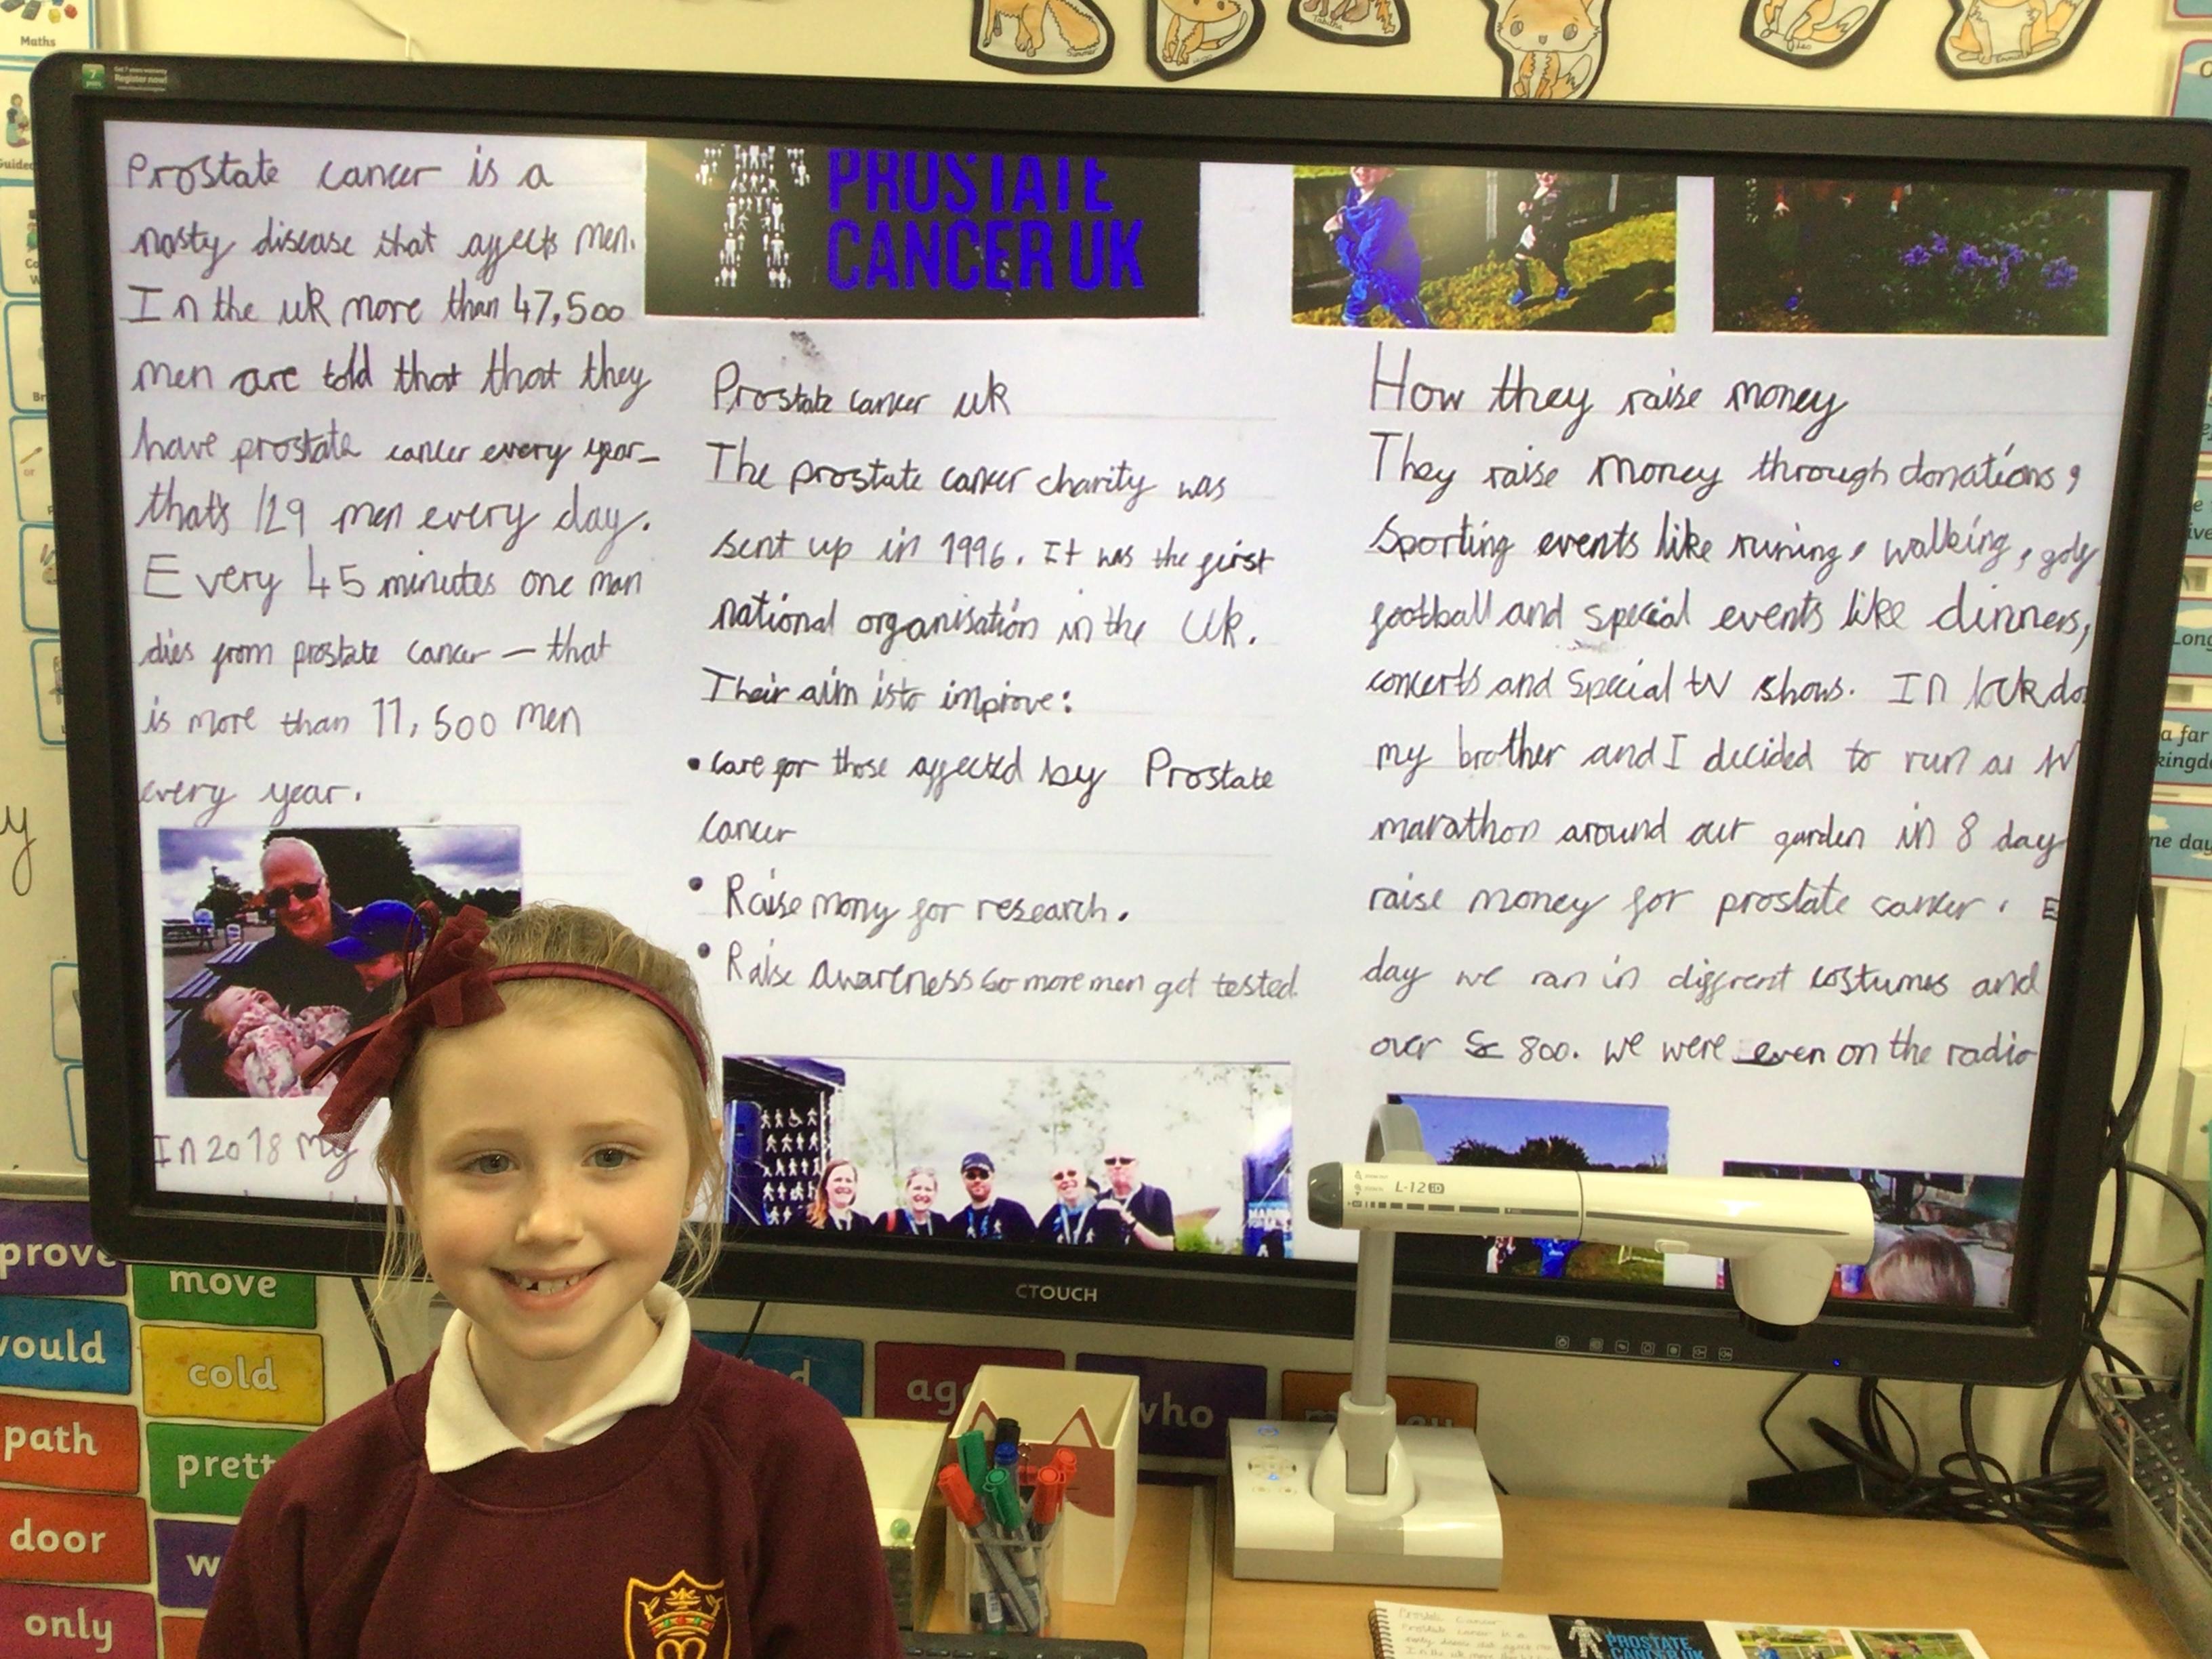 Maths
7
years
Get 7 years warranty
Register now!
Summer
Tabitha
Leo
Prostate cancer is a
nasty disease that affects men.
In the uk more than 47,500
men are told that that they
have prostate cancer every year_
that's 129 men every day.
Every 45 minutes one man
dies from prostate cancer — that
is more than 11,500 men
every year.
In 2018 my
PROSTATE
CANCER UK
Prostate cancer uk
The prostate cancer charity was
sent up in 1996. It was the first
national organisation in the Uk.
Their aim is to improve:
• care for those affected by Prostate
cancer
• Raise mony for research.
• Raise awareness so more men get tested.
How they raise money
They raise money through donations,
Sporting events like runing, walking, golf
football and special events like dinners,
concerts and special tv shows. In lockdo
my brother and I decided to run a
marathon around our garden in 8 day
raise money for prostate cancer. E
day we ran in different costumes and
over £ 800. we were even on the radio
L-12iD
CTOUCH
prove
move
would
cold
path
prett
door
w
only
ind
ag
who
ey
Long
a far
kingd
ne day
Prostate Cancer
Prostate cancer is a
nasty disease that affects me
In the uk more than
PROSTATE
CANCER UK